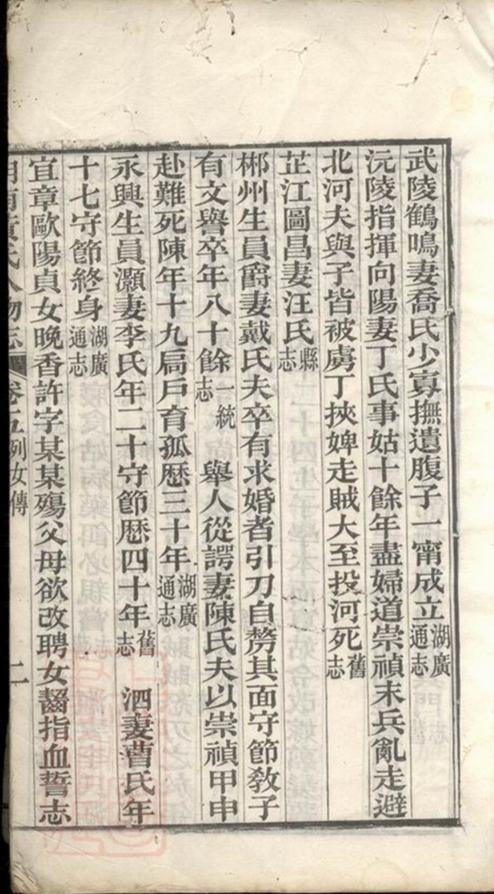 武陵鶴鳴妻喬氏少寡撫遺腹子一甯成立湖廣通志
沅陵指揮向陽妻丁氏事姑十餘年盡婦道崇禎末兵亂走避
北河夫與子皆被虜丁挾婢走賊大至投河死舊志
芷江圖昌妻汪氏縣志
郴州生員爵妻戴氏夫卒有求婚者引刀自剺其面守節敎子
有文譽卒年八十餘一統志 舉人從諤妻陳氏夫以崇禎甲申
赴難死陳年十九扃戶育孤歷三十年湖廣通志
永興生員灝妻李氏年二十守節歷四十年舊志 泗妻曹氏年
十七守節終身湖廣通志
宜章歐陽貞女晚香許字某某殤父母欲改聘女齧指血誓志
氏人物志 卷五列女傳 二